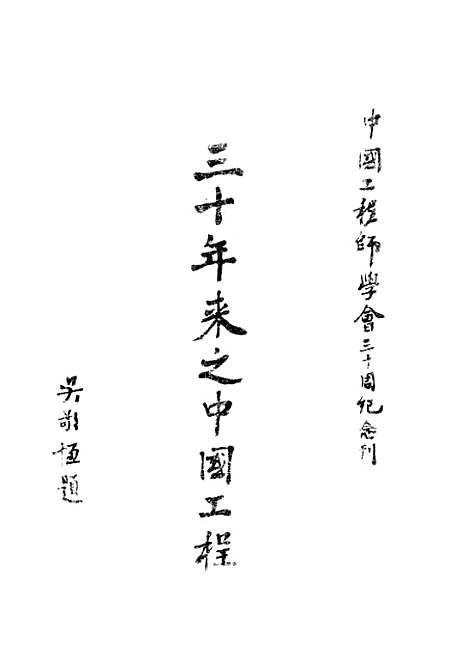 中國工程師學會三十周紀念刊
三十年來之中國工程
吳敬恆題